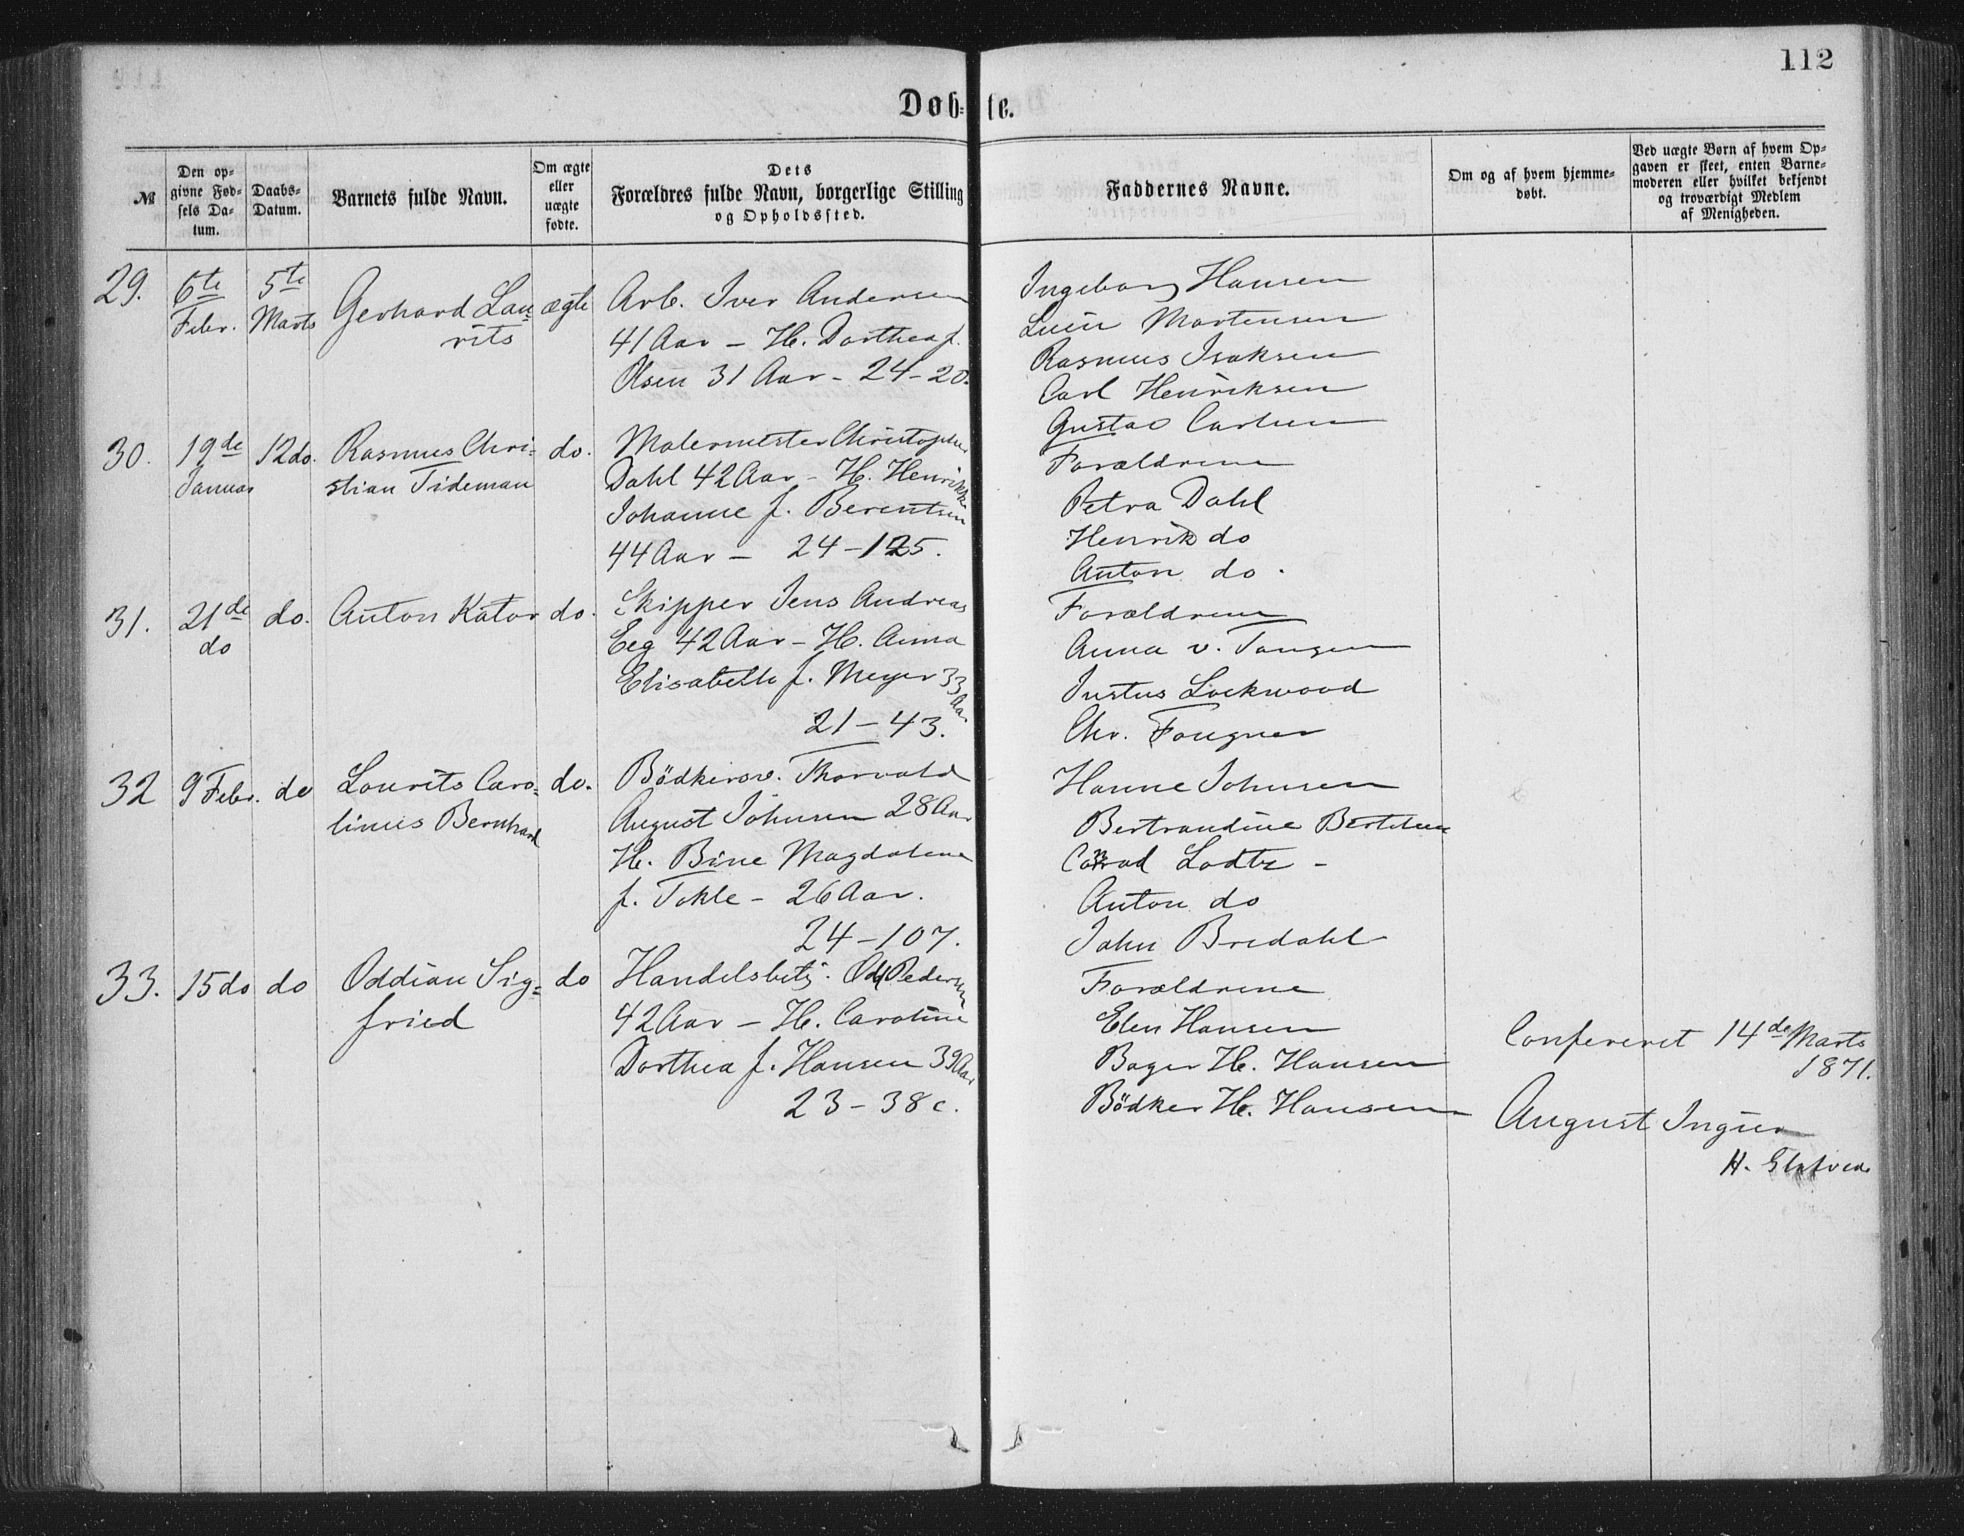 112
Døb- te.
№
Den op-
givne Fød-
sels Da-
tum.
Daabs-
Datum.
Barnets fulde Navn.
Om ægte
eller
uægte
fødte.
Dets
Forældres fulde Navn, borgerlige Stilling
og Opholdssted.
Faddernes Navne.
Om og af hvem hjemme-
døbt.
Ved uægte Børn af hvem Op-
gaven er skeet, enten Barne-
moderen eller hvilket bekjendt
og troværdigt Medlem
af Menigheden.
29.
6te
Febr.
5te
Marts
Gerhard Lau-
rits
ægte
Arb. Iver Andersen
41 Aar – H. Dorthea f.
Olsen 31 Aar – 24–20.
Ingeborg Hansen
Martensen
Rasmus Isaksen
Carl Henriksen
Gustav Carlsen
30.
19de
Januar
12 do.
Rasmus Chri-
stian Tideman
do.
Malermester Christopher
Dahl 42 Aar – H. Henrikke
Johanne f. Berentsen
44 Aar – 24–125.
Forældrene
Petra Dahl
Henrik do
Anton do.
31.
21de
do
do.
Anton Kator
do.
Skipper Jens Andreas
Eeg 42 Aar – H. Anna
Elisabeth f. Meyer 33
Aar
21–43.
Forældrene
Anna v. Tangen
Justus Lockwood
Chr. Fougner
32
9 Febr.
do
Laurits Caro-
linus Bernhard
do.
Bödkersv. Thorvald
August Johnsen 28 Aar
H. Bine Magdalene
f. Tokle – 26 Aar.
24–107.
Hanne Johnsen
Bertrandine Bertelsen
Conrad Lodtz –
Anton do
John Bredahl
33.
15 do
do
Oddian Sig-
fried
do
Handelsbetj. Odd Pedersen
42 Aar – H. Caroline
Dorthea f. Hansen 39 Aar
23–38 c.
Forældrene
Elen Hansen
Bager H. Hansen
Bödker H. Hansen
Confereret 14de Marts
1871.
August Ingier
H.